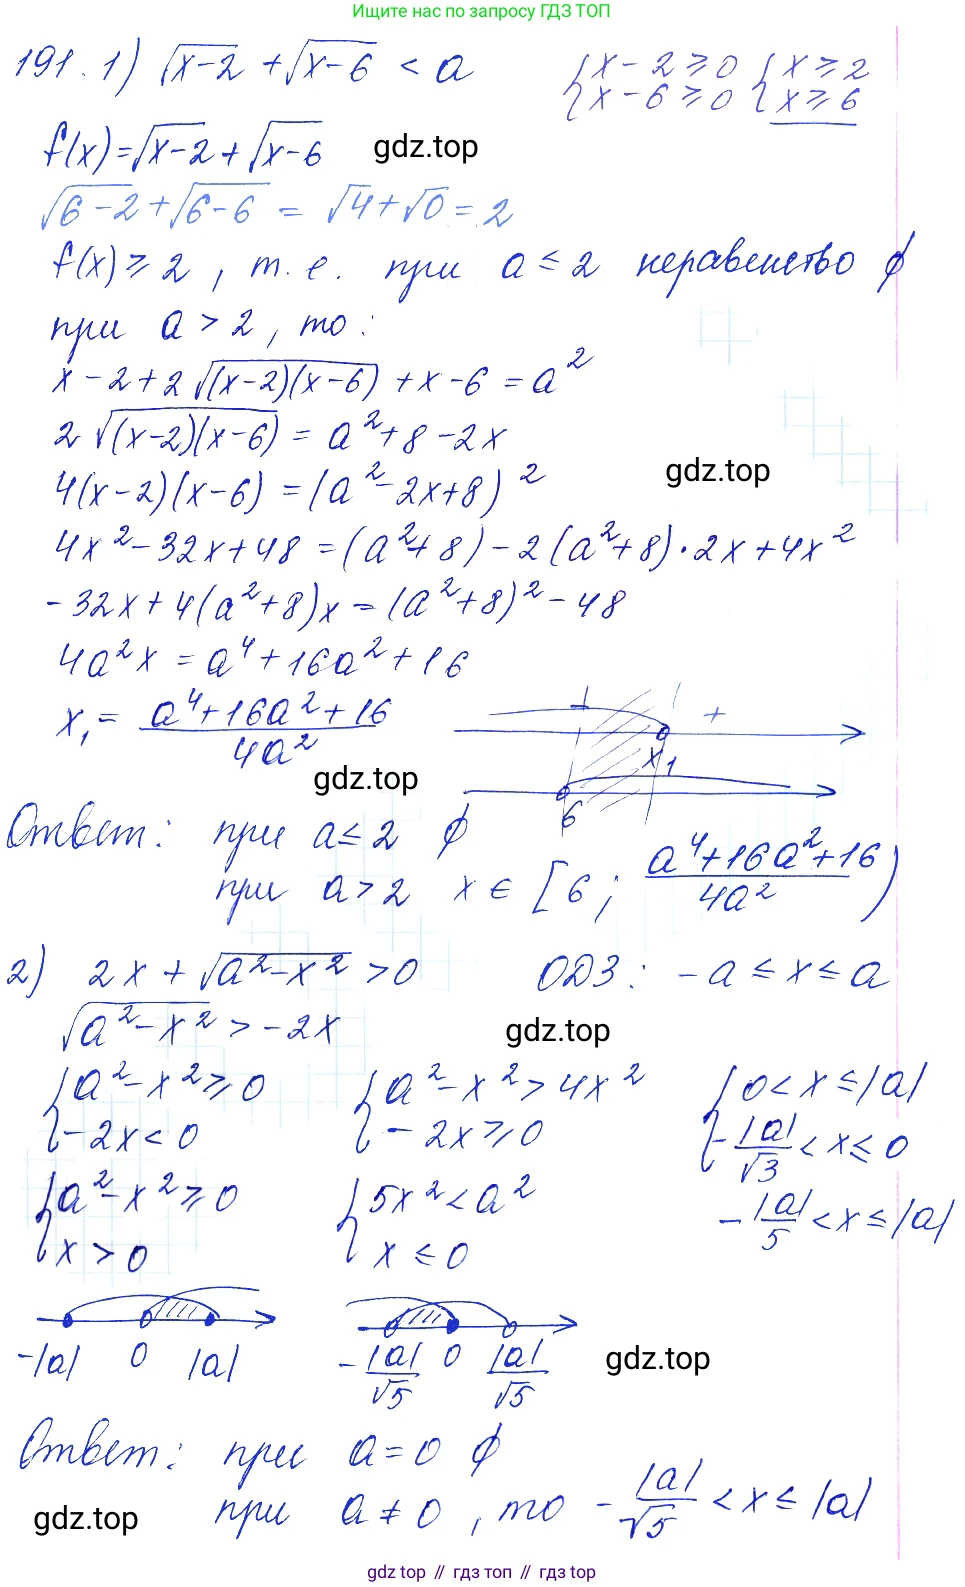 Ищите нас по запросу ГДЗ ТОП
191. 1) √(x-2) + √(x-6) < a { x-2 ≥ 0 { x ≥ 2
{ x-6 ≥ 0 { x ≥ 6
f(x) = √(x-2) + √(x-6) gdz.top
√(6-2) + √(6-6) = √4 + √0 = 2
f(x) ≥ 2, т.е. при a ≤ 2 неравенство ∅
при a > 2, то:
x - 2 + 2√((x-2)(x-6)) + x - 6 = a²
2√((x-2)(x-6)) = a² + 8 - 2x
4(x-2)(x-6) = (a² - 2x + 8)² gdz.top
4x² - 32x + 48 = (a² + 8) - 2(a² + 8)·2x + 4x²
-32x + 4(a² + 8)x = (a² + 8)² - 48
4a²x = a⁴ + 16a² + 16
x₁ = (a⁴ + 16a² + 16)/(4a²) + x₁
gdz.top 6
Ответ: при a ≤ 2 ∅
при a > 2 x ∈ [6; (a⁴ + 16a² + 16)/(4a²))
2) 2x + √(a² - x²) > 0 ОДЗ: -a ≤ x ≤ a
√(a² - x²) > -2x gdz.top
{ a² - x² ≥ 0 { a² - x² > 4x² { 0 < x ≤ |a|
{ -2x < 0 { -2x ≥ 0 { -|a|/√3 < x ≤ 0
{ a² - x² ≥ 0 { 5x² < a² -|a|/5 < x ≤ |a|
{ x > 0 { x ≤ 0
-|a| 0 |a| -|a|/√5 0 |a|/√5 gdz.top
Ответ: при a = 0 ∅
gdz.top при a ≠ 0, то -|a|/√5 < x ≤ |a|
gdz.top // гдз топ // гдз.топ